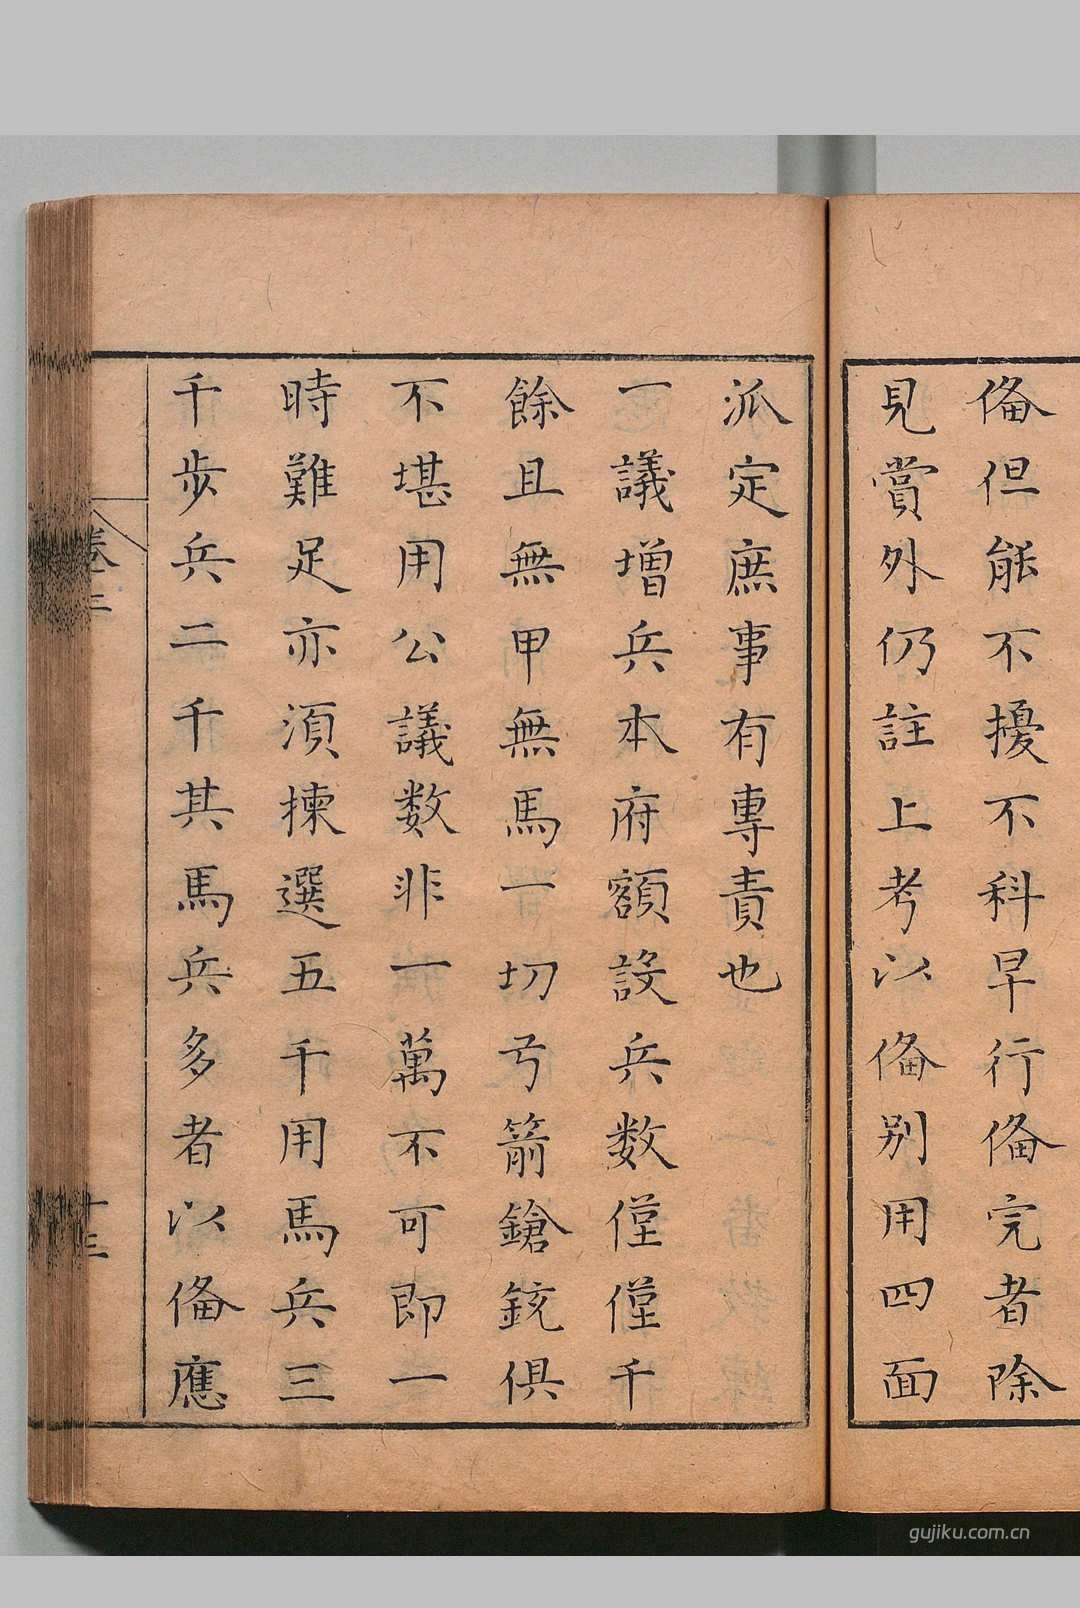 俻但能不擾不科早行俻完者除
見賞外仍註上考以俻别用四面
派定庶事有專責也
一議增兵本府額設兵数僅僅千
餘且無甲無馬一切弓箭鎗銃俱
不堪用公議数非一萬不可即一
時難足亦須揀選五千用馬兵三
千步兵二千其馬兵多者以俻應
卷三
十三
gujiku.com.cn